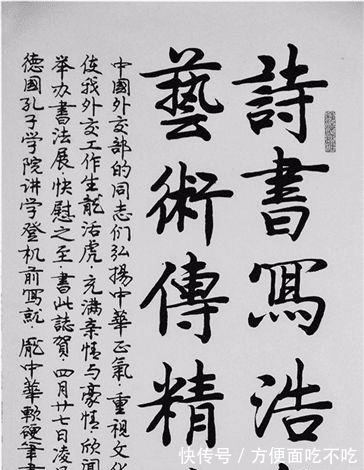 詩書寫浩
藝術傳精
中國外交部的同志们弘揚中华正氣重視文化
使我外交工作生龍活虎·充满亲情与豪情·欣闻
举办書法展·快慰之至·書此誌賀·四月廿七日凌晨
德國孔子学院讲学登机前寫就 龐中華軟硬筆書
快传号/方便面吃不吃